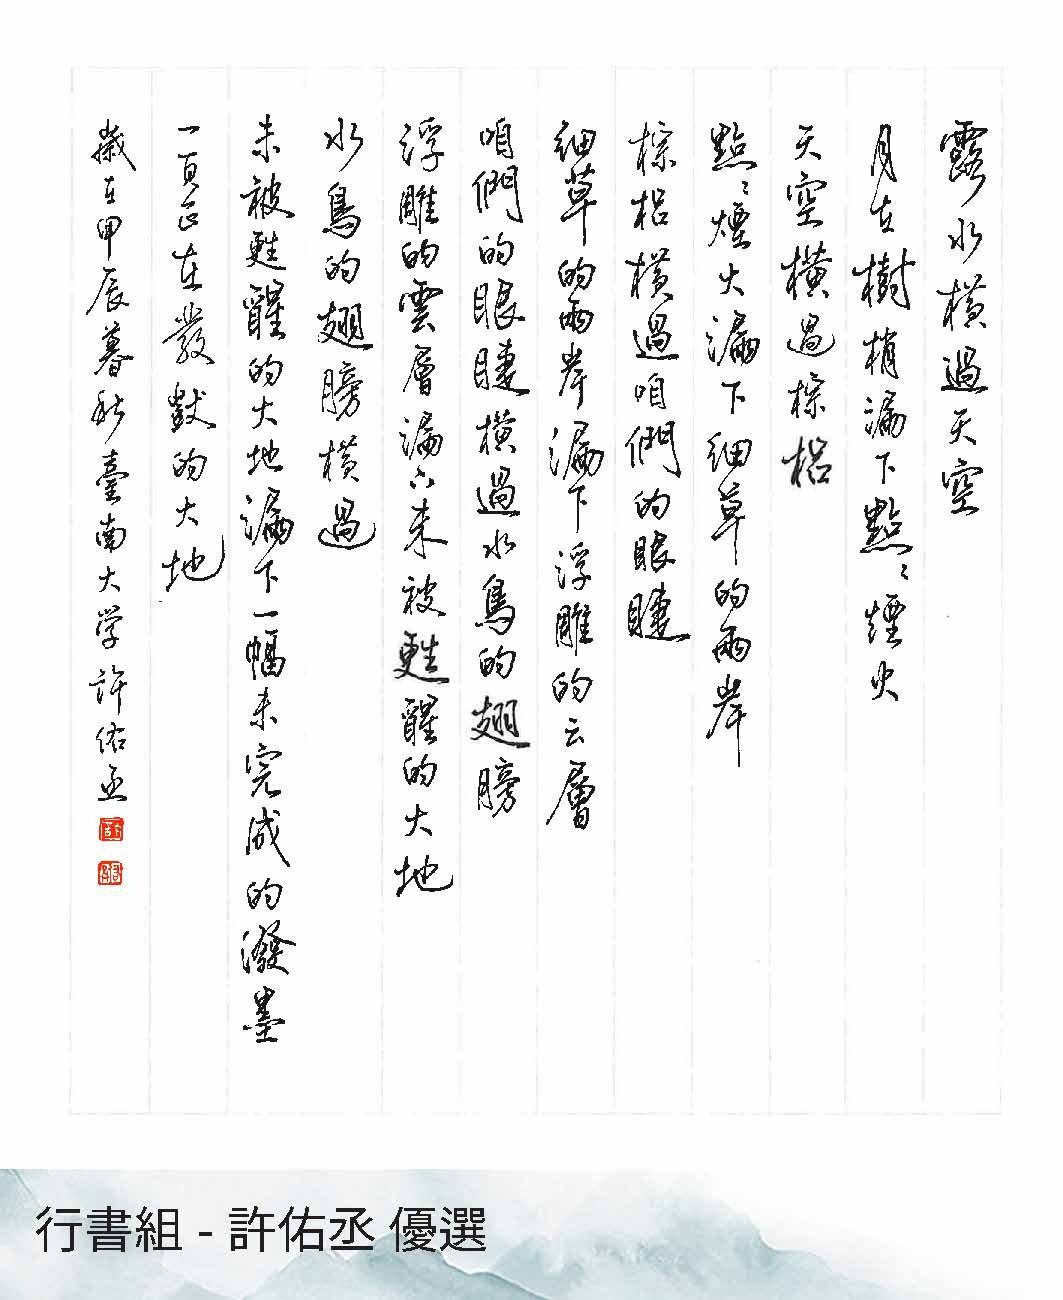 露水橫過天空
月在樹梢漏下點〻煙火
天空橫過棕梠
點〻煙火漏下細草的兩岸
棕梠橫過咱們的眼睫
細草的兩岸漏下浮雕的云層
咱們的眼睫橫過水鳥的翅膀
浮雕的雲層漏下未被甦醒的大地
水鳥的翅膀橫過
未被甦醒的大地漏下一幅未完成的潑墨
一頁正在發獃的大地
歲在甲辰暮秋臺南大学許佑丞
行書組 - 許佑丞 優選